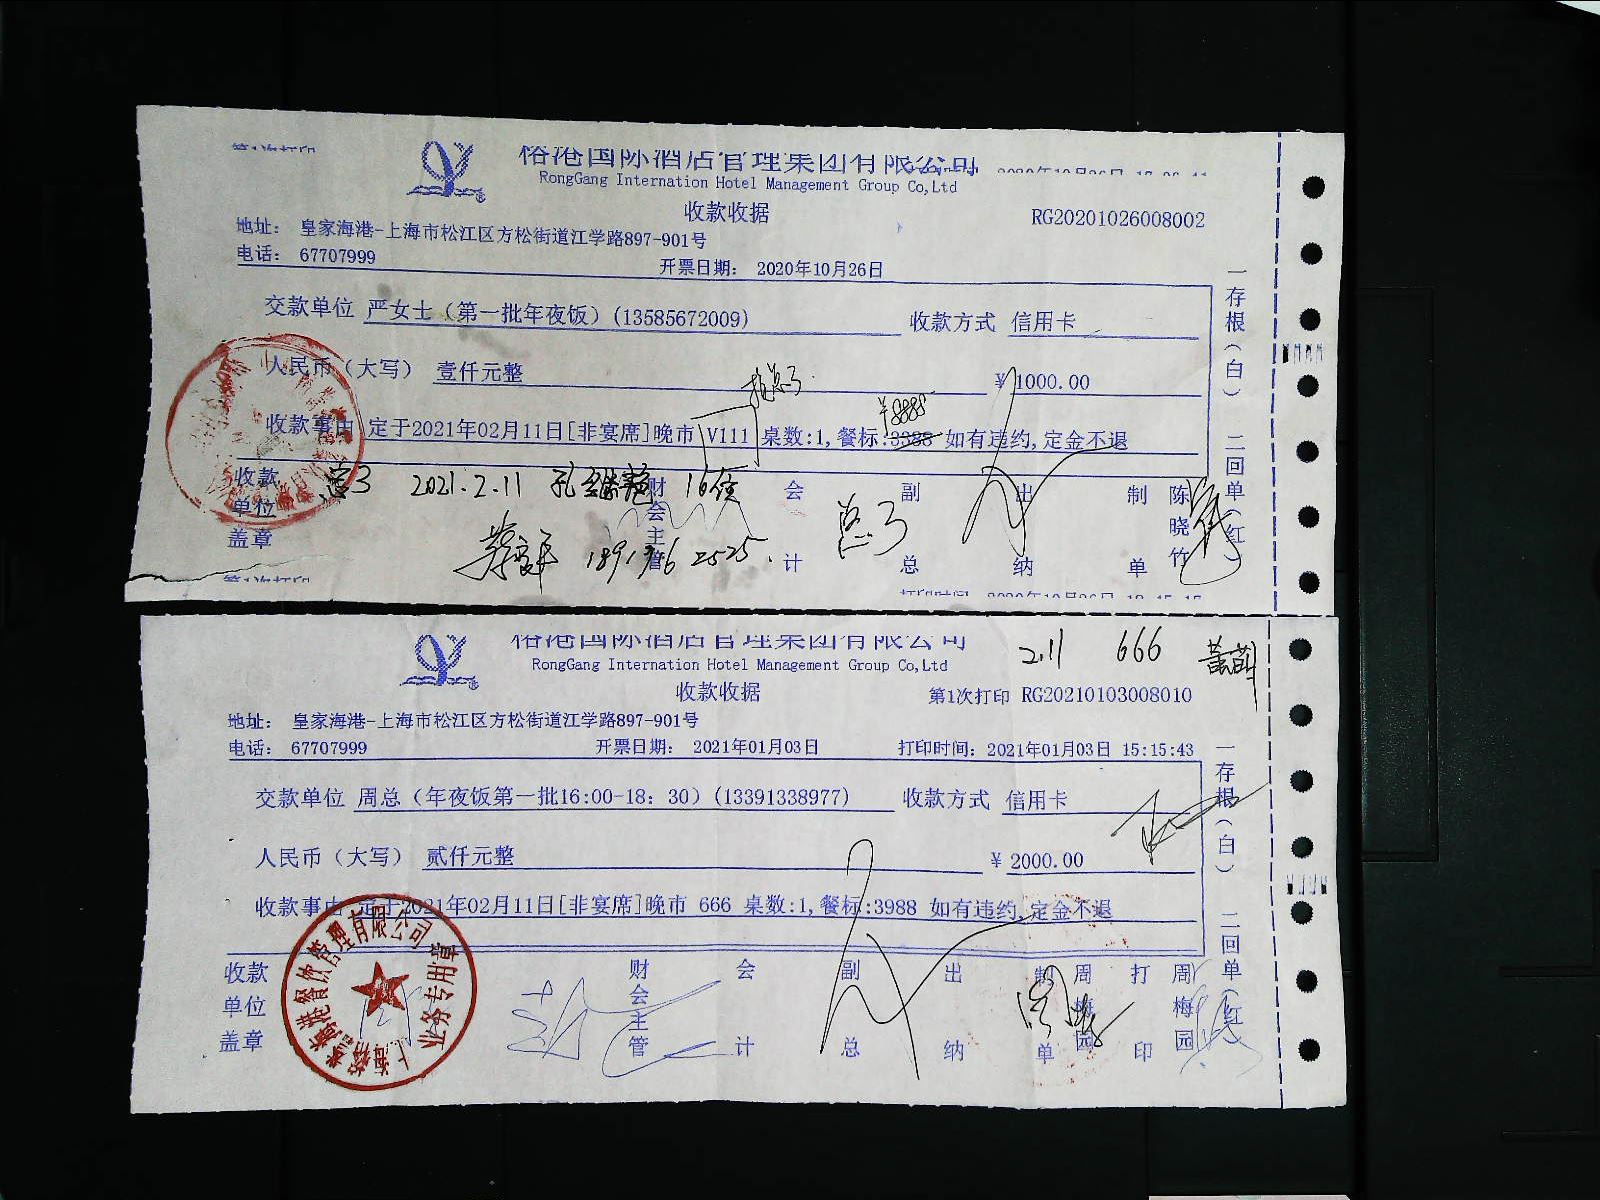 第1次打印
裕港国际酒店管理集团有限公司
RongGang Internation Hotel Management Group Co,Ltd
收款收据
RG20201026008002
地址： 皇家海港-上海市松江区方松街道江学路897-901号
电话： 67707999
开票日期： 2020年10月26日
交款单位 严女士（第一批年夜饭）(13585672009)
收款方式 信用卡
人民币（大写） 壹仟元整
¥ 1000.00
¥8888
收款事由 定于2021年02月11日[非宴席]晚市 V111 桌数:1,餐标:3388 如有违约,定金不退
收款单位盖章
2021.2.11
财会主管
会计
副总
出纳
制单
陈晓竹
一存根（白） 二回单（红）
第1次打印
裕港国际酒店管理集团有限公司
2.11 666
RongGang Internation Hotel Management Group Co,Ltd
收款收据
第1次打印 RG20210103008010
地址： 皇家海港-上海市松江区方松街道江学路897-901号
电话： 67707999
开票日期： 2021年01月03日
打印时间: 2021年01月03日 15:15:43
交款单位 周总（年夜饭第一批16:00-18：30）(13391338977)
收款方式 信用卡
人民币（大写） 贰仟元整
¥ 2000.00
收款事由 定于2021年02月11日[非宴席]晚市 666 桌数:1,餐标:3988 如有违约,定金不退
收款单位盖章
财会主管
会计
副总
出纳
制单
周梅园
打印
周梅园
一存根（白） 二回单（红）
业务专用章